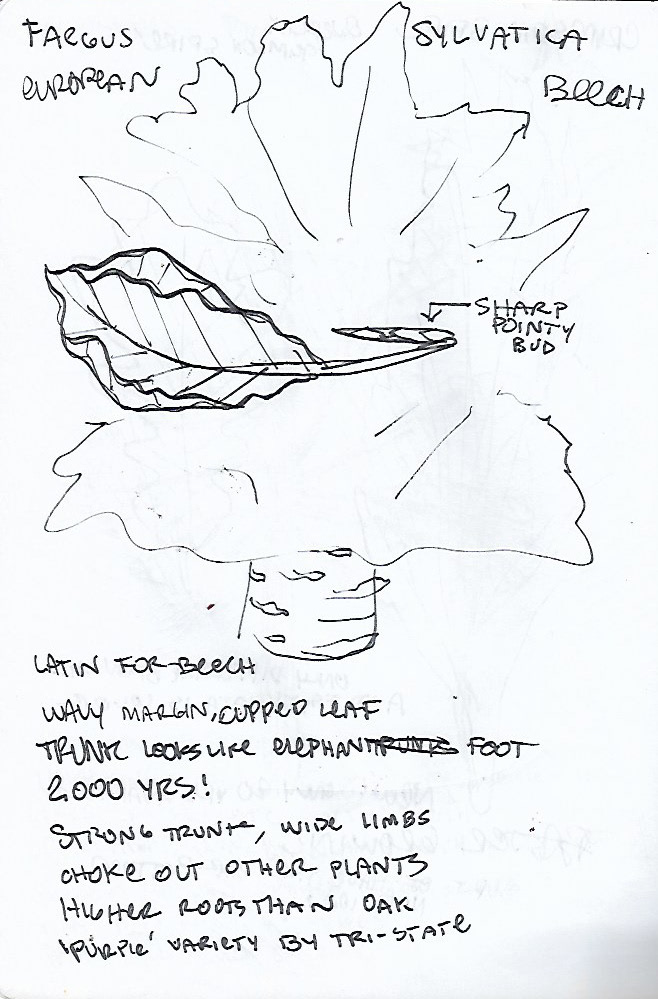 FARGUS SYLVATICA
EUROPEAN BEECH
SHARP
POINTY
BUD
LATIN FOR BEECH
WAVY MARGIN, CUPPED LEAF
TRUNK LOOKS LIKE ELEPHANT FOOT
2,000 YRS!
STRONG TRUNK, WIDE LIMBS
CHOKE OUT OTHER PLANTS
HIGHER ROOTS THAN OAK
'PURPLE' VARIETY BY TRI-STATE